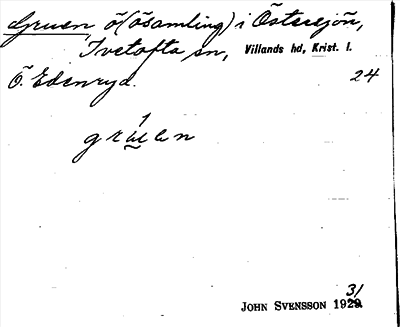 Gruen ö (ösamling) i Östersjön,
Ivetofta sn, Villands hd, Krist. l.
Ö. Edenryd. 24
1
gruen
31
JOHN SVENSSON 1929.